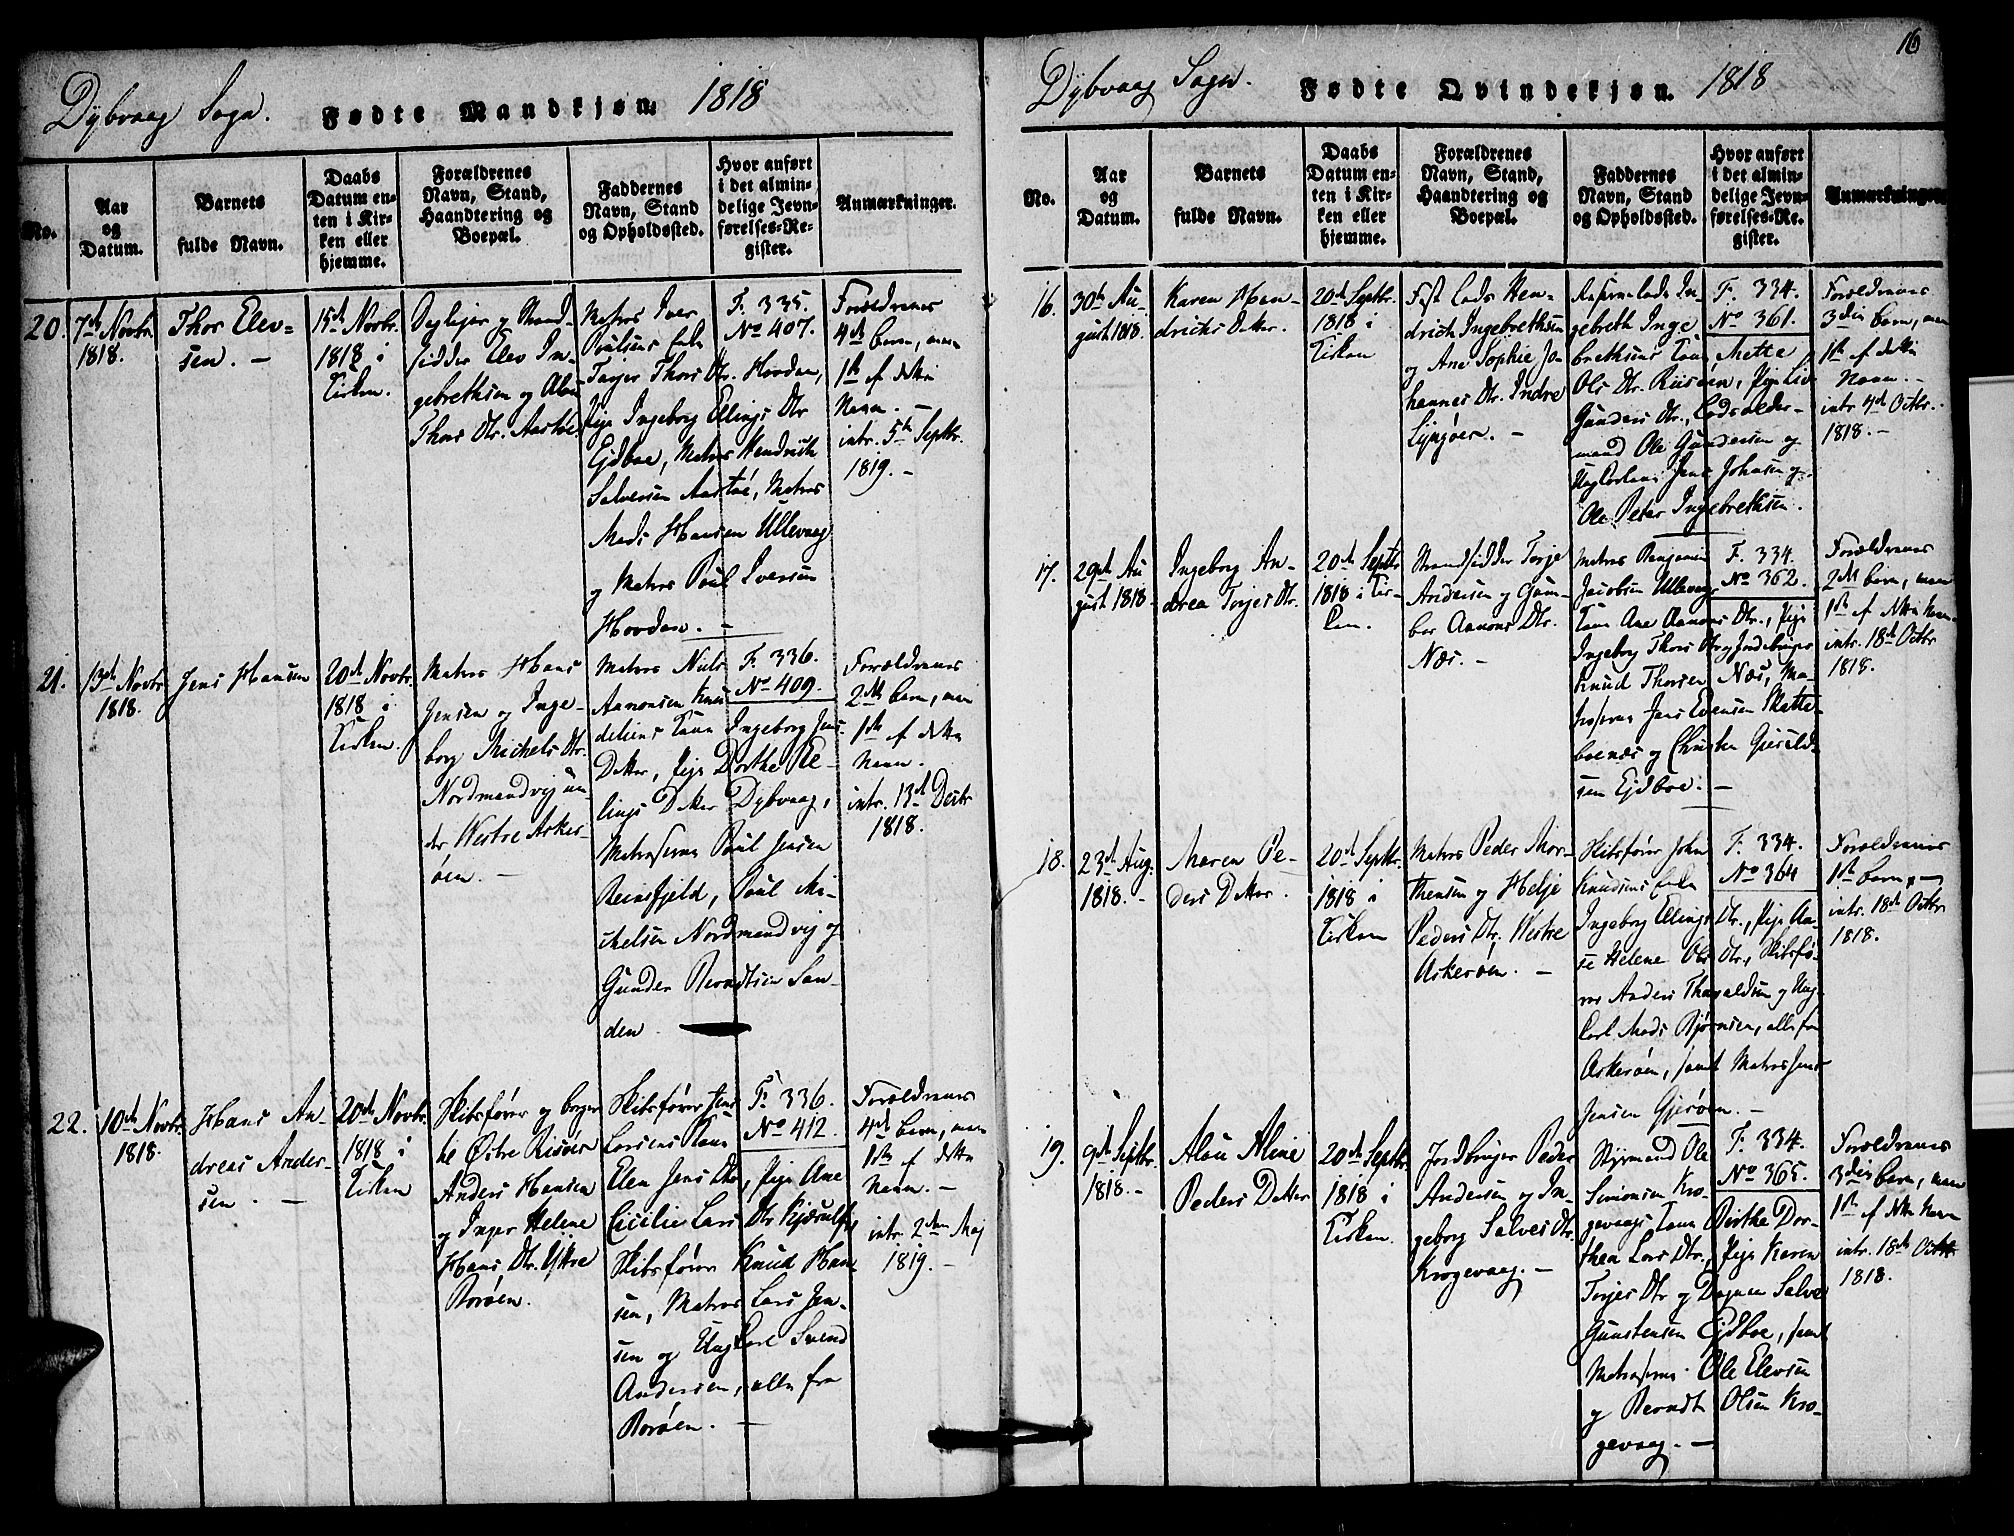 Dybvaag Sogn. Fødte Mandkjøn. 1818
No.
Aar
og
Datum.
Barnets
fulde Navn.
Daabs
Datum en-
ten i Kir-
ken eller
hjemme.
Forældrenes
Navn, Stand,
Haandtering og
Boepæl.
Faddernes
Navn, Stand
og Opholdssted.
Hvor anført
i det almin-
delige Jevn-
førelses-Re-
gister.
Anmærkninger.
20.
7de Novbr.
1818.
Thor Elev-
sen. —
15de Novbr.
1818 i
Kirken.
og Strand-
sidder Elev In-
gebrethsen og
Thors Dtr. Aastøe
Matros Iver
Poulsens
Torjer Thors Dtr. Hovdan,
Pige Ingeborg Ellings Dtr
Ejdboe, Matros Hendrich
Salvesen Aastøe, Matros
Mads Hansen Ullevaag
og Matros Poul Iversen
Hovdan. —
F. 335.
No 407.
Forældrenes
4de barn, men
1ste af dette
Navn. —
intr. 5te Septbr.
1819. —
21.
13de Novbr.
1818.
Jens Hansen
20de Novbr.
1818 i
Kirken.
Matros Hans
Jensen og Inge-
borg Michels Dtr.
Nordmandvig un-
der Westre Asker-
øen. —
Matros Niels
Aanonsen
Ingeborg Jens
Datter, Pige Dorthe El-
lings Datter Dybvaag,
Matroserne Poul Jensen
Reinsfjeld, Poul Mi-
chelsen Nordmandvig og
Gunder Berndtsen San-
den.
F. 336.
No 409.
Forældrenes
2det barn, men
1ste af dette
Navn.
intr. 13de Decbr
1818.
22.
10de Novbr.
1818.
Hans An-
dreas Ander-
sen. —
20de Novbr.
1818 i
Kirken
Skibsfører og borger
til Østre Risøer
Anders Hansen
og Inger Helene
Hans Dtr. Ystre
Borøen.
Skibsfører Jens
Larsens Kone
Elen Jens Dtr, Pige Ane
Cicilie Lars Dtr
Skibsfører Knud Han-
sen, Matros Lars Jen-
sen og Ungkarl Svend
Andersen, alle fra
Borøen. —
F. 336.
No 412.
Forældrenes
4de barn, men
1ste af dette
Navn. —
intr. 2den Maj
1819. —
16
Dybvaag Sogn. Fødte Qvindekjøn. 1818
No.
Aar
og
Datum.
Barnets
fulde Navn.
Daabs
Datum en-
ten i Kir-
ken eller
hjemme.
Forældrenes
Navn, Stand,
Haandtering og
Boepæl.
Faddernes
Navn, Stand
og Opholdssted.
Hvor anført
i det almin-
delige Jevn-
førelses-Re-
gister.
Anmærkninger.
16.
30te Au-
gust 1818.
Karen Hen-
drichs Datter.
20de Septbr.
1818 i
Kirken
Fast Lods Hen-
drich Ingebrethsen
og Ane Sophie Jo-
hannes Dtr. Indre
Lyngøer. —
Reservelods In-
gebreth Inge-
brethsens Kone Mette
Ols Dtr. Riisøen, Pige Liv
Gunders Dtr., Lodsolder-
mand Ole Gundersen og
Ungkarlene Jens Johnsen og
Ole Peter Ingebrethsen.
F. 334.
No 361.
Forældrenes
3die barn, men
1ste af dette
Navn. —
intr. 4de Octbr.
1818. —
17.
29de Au-
gust 1818.
Ingeborg An-
drea Torjes Dtr.
20de Septbr
1818 i Kir-
ken.
Strandsidder Torje
Andersen og Gun-
bor Aanons Dtr.
Næs. —
Matros Benjamin
Jacobsen Ullevaags
Kone Ane Aanons Dtr., Pige
Ingeborg Thors Dtr og Jordebruger
Knud Thorsen Næs, Ma-
troserne Jens Evensen Skatte-
boenæs og Christen Gierild-
sen Ejdboe. —
F. 334.
No 362.
Forældrenes
2det barn, men
1ste af dette Navn.
intr. 18de Octbr
1818.
18.
23de Aug.
1818. —
Maren Pe-
ders Datter.
20de Septbr.
1818 i
Kirken
Matros Peder Mor-
thensen og Helje
Peders Dtr, Westre
Askerøen. —
Skibsfører John
Knudsens
Ingeborg Ellings Dtr., Pige Aa-
se Helene Ols Dtr, Skibsfø-
rer Anders Thorvaldsen og Ung-
karl Mads Bjørnsen, alle fra
Askerøen, samt Matros Jens
Jensen Gjerøen. —
F. 334.
No 364
Forældrenes
1ste barn, —
intr. 18de Octbr
1818.
19.
9de Septbr.
1818. —
Alau Aline
Peders Datter
20de Septbr.
1818 i
Kirken.
Jordbruger Peder
Andersen og In-
geborg Salves Dtr.
Krogevaag. —
Styrmand Ole
Simonsen Kro-
gevaags Kone Birthe Dor-
thea Lars Dtr., Pige Karen
Torjes Dtr og Salve
Gunstensen Ejdboe, samt
Matroserne Ole Elevsen
og Berndt Olsen Kro-
gevaag. —
F. 334.
No 365.
Forældrenes
3die barn, men
1ste af dette Navn
intr. 18de Octbr
1818.